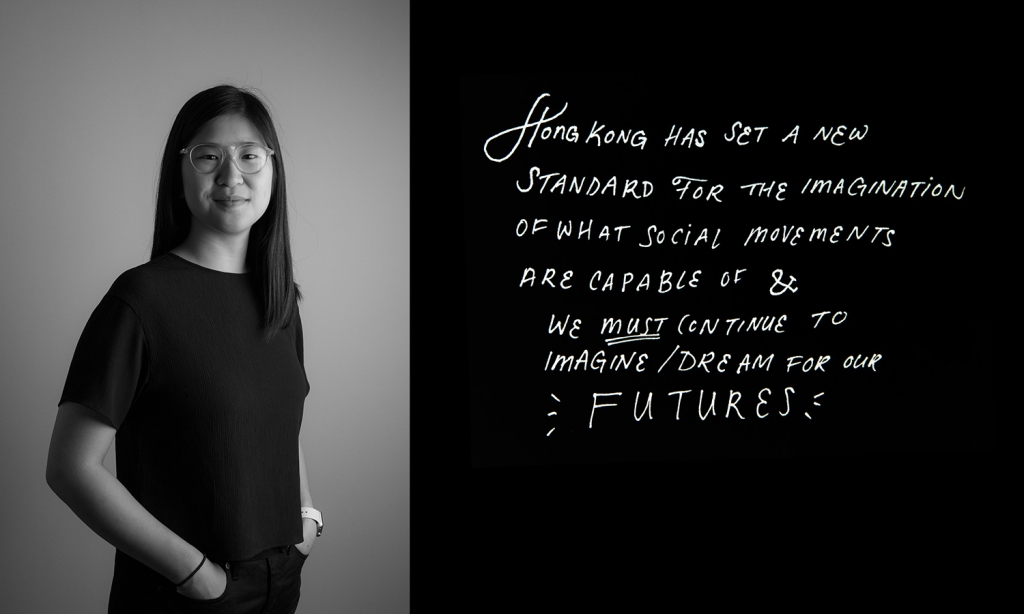 HONG KONG HAS SET A NEW
STANDARD FOR THE IMAGINATION
OF WHAT SOCIAL MOVEMENTS
ARE CAPABLE OF &
WE MUST CONTINUE TO
IMAGINE/DREAM FOR OUR
FUTURES